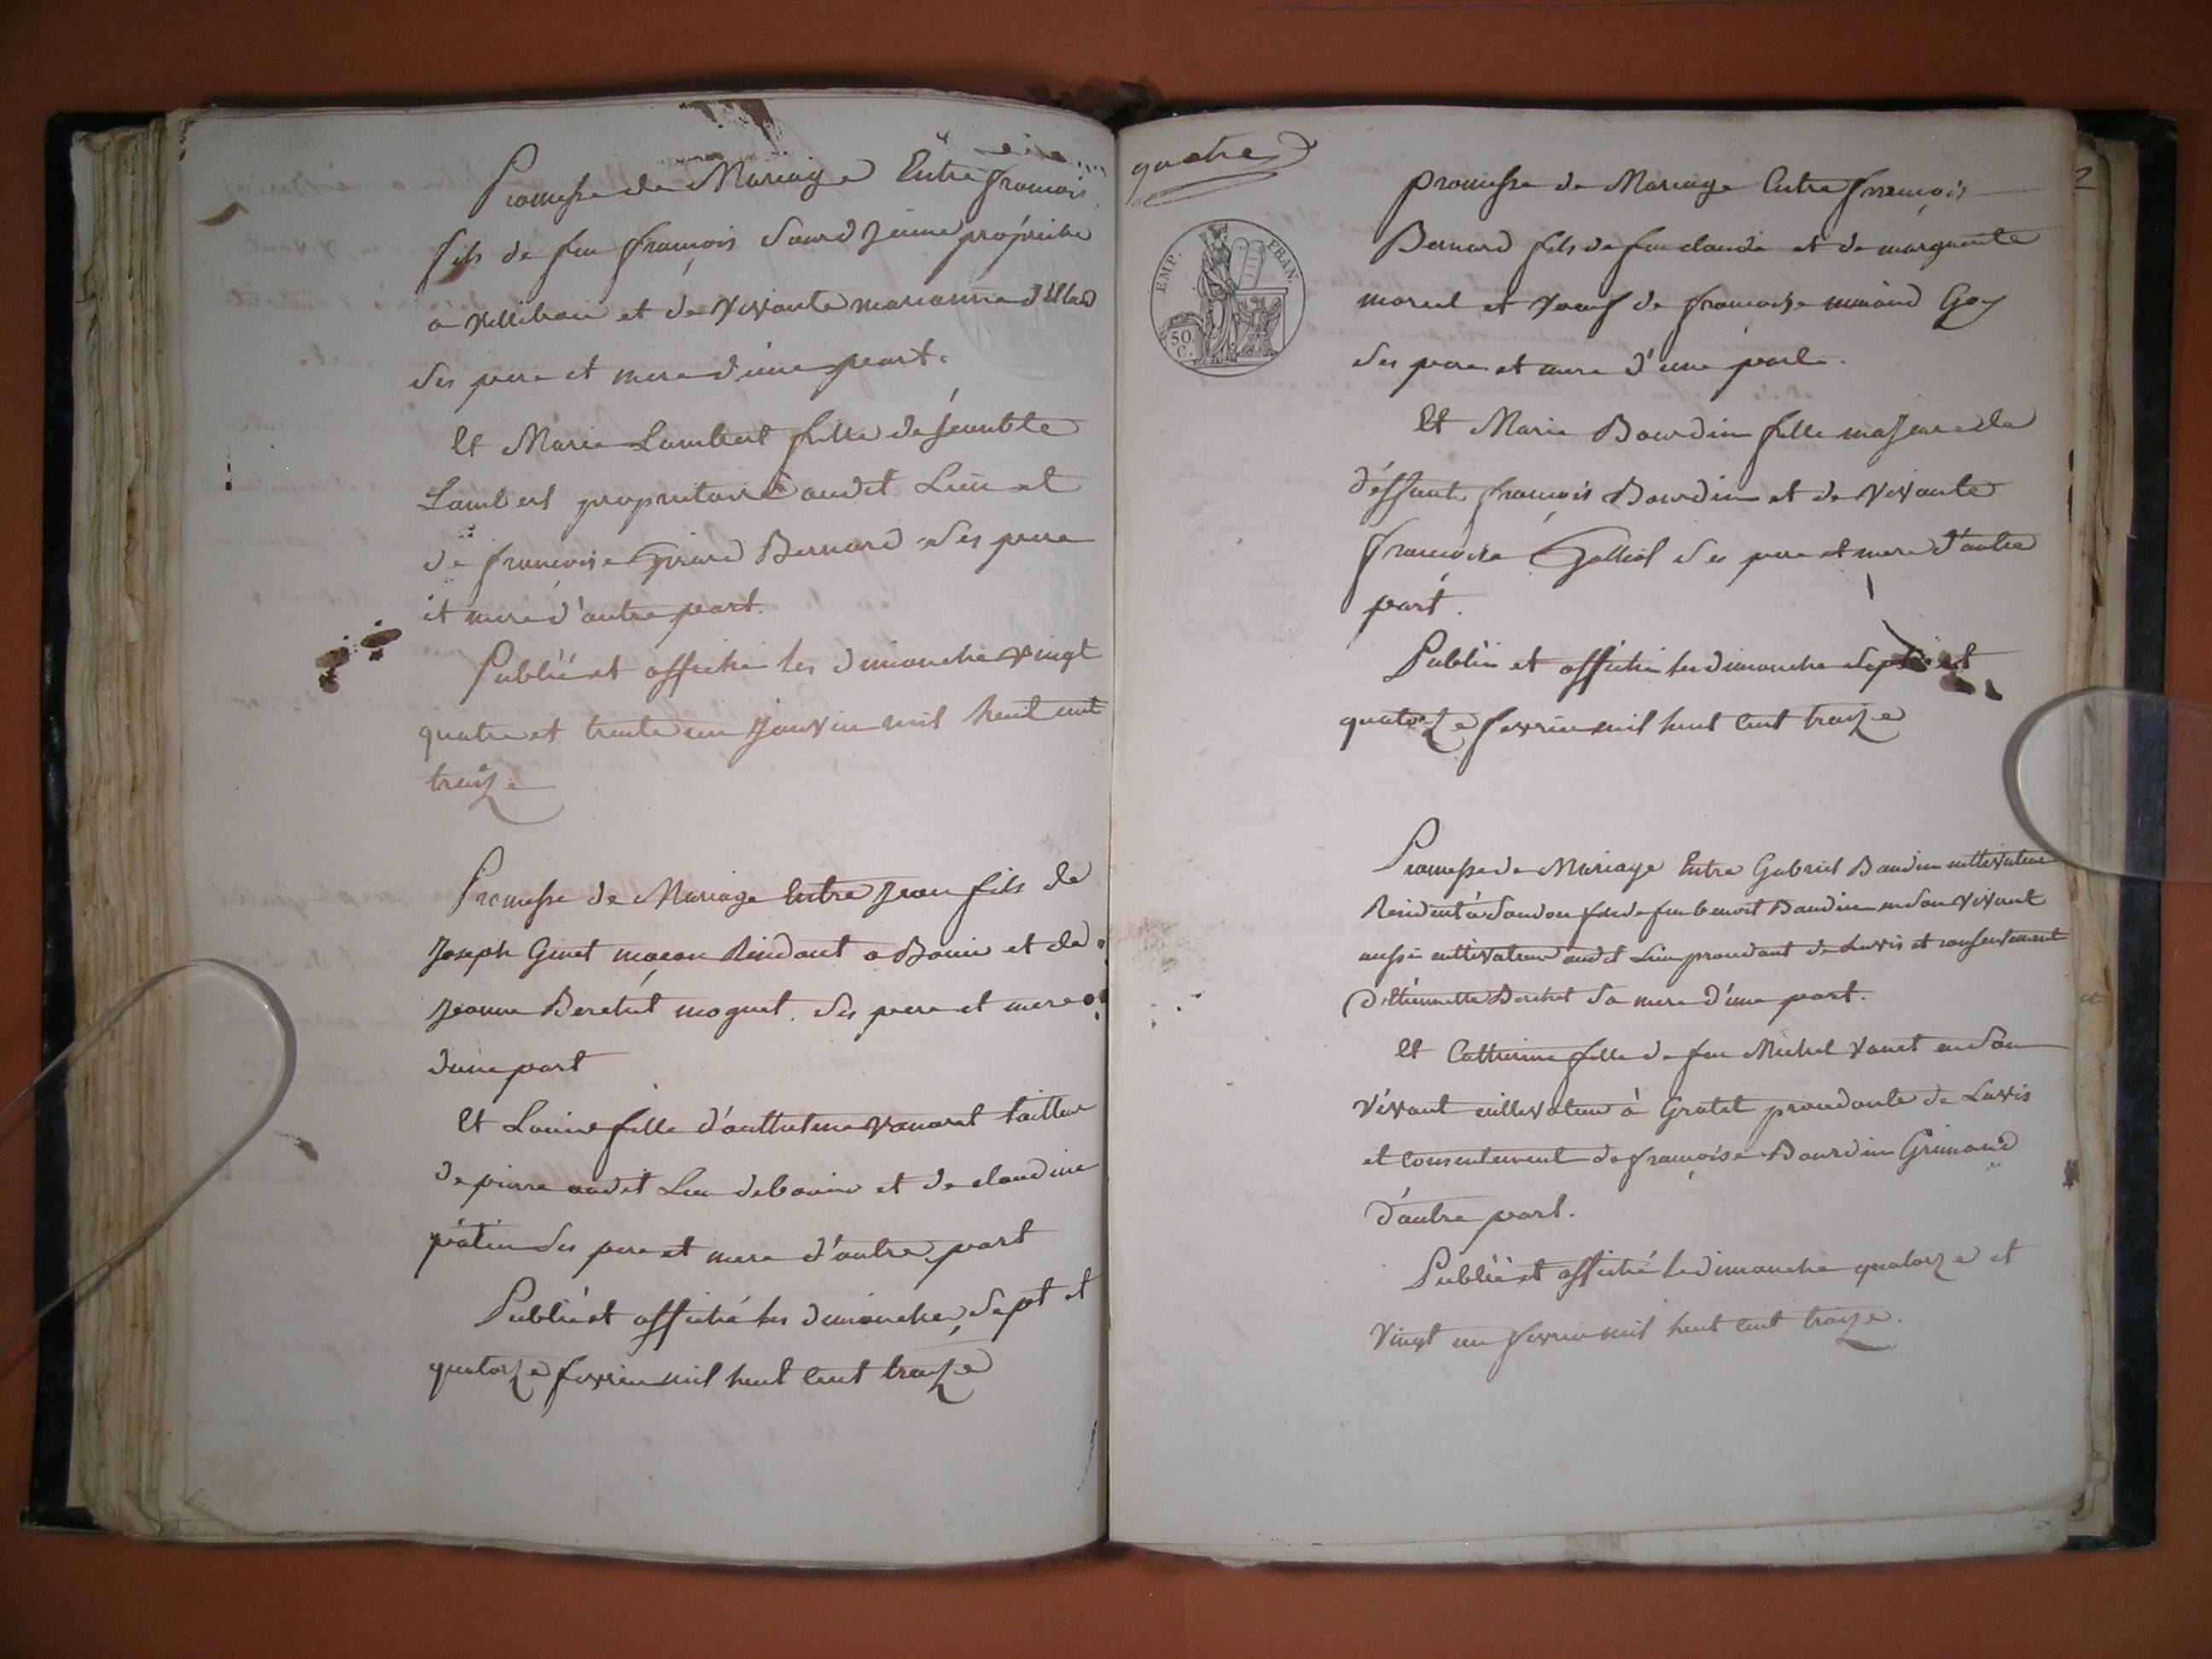 Promesse de Mariage Entre francois
fils de feu francois Sourd Jeune
a et de Vivante marianne
Ses pere et mere d'une part.
Et Marie Lambert fille de
Lambert proprietaire audit Lieu et
de francoise Girard Bernard Ses pere
et mere d'autre part.
Publié et affiché les dimanche vingt
quatre et trente un Janvier mil huit cent
traize
Promesse de Mariage Entre Jean fils de
Joseph Ginet maçon Residant a et de
Jeanne Berchet moguet. Ses pere et mere
d'une part
Et Louise fille vanaret tailleur
de pierre audit Lieu et de claudine
pâtin Ses pere et mere d'autre part
Publié et affiché les dimanches Sept et
quatorze fevrier mil huit cent traize
quatre
EMP. FRAN.
50 C.
promesse de Mariage Entre françois
Bernard fils de feu claude et de marguerite
morel et vœuf de francoise Goy
Ses pere et mere d'une part.
Et Marie Bourdin fille majeure de
déffunt françois Bourdin et de Vivante
francoise Golliol Ses pere et mere d'autre
part.
Publié et affiché les dimanche Sept et
quatorze fevrier mil huit cent traize
Promesse de Mariage Entre Gabriel Baudin cultivateur
Residant à fils de feu benoit Baudin en Son Vivant
aussi cultivateur audit Lieu de Lavis et consentement
d'Etiennette Berchet Sa mere d'une part.
Et Catherine fille de feu Michel Vanet en Son
Vivant cultivateur à Gratet de Lavis
et Consentement de françoise Bourdin Grimand
d'autre part.
Publié et affiché le dimanche quatorze et
Vingt un fevrier mil huit cent traize.